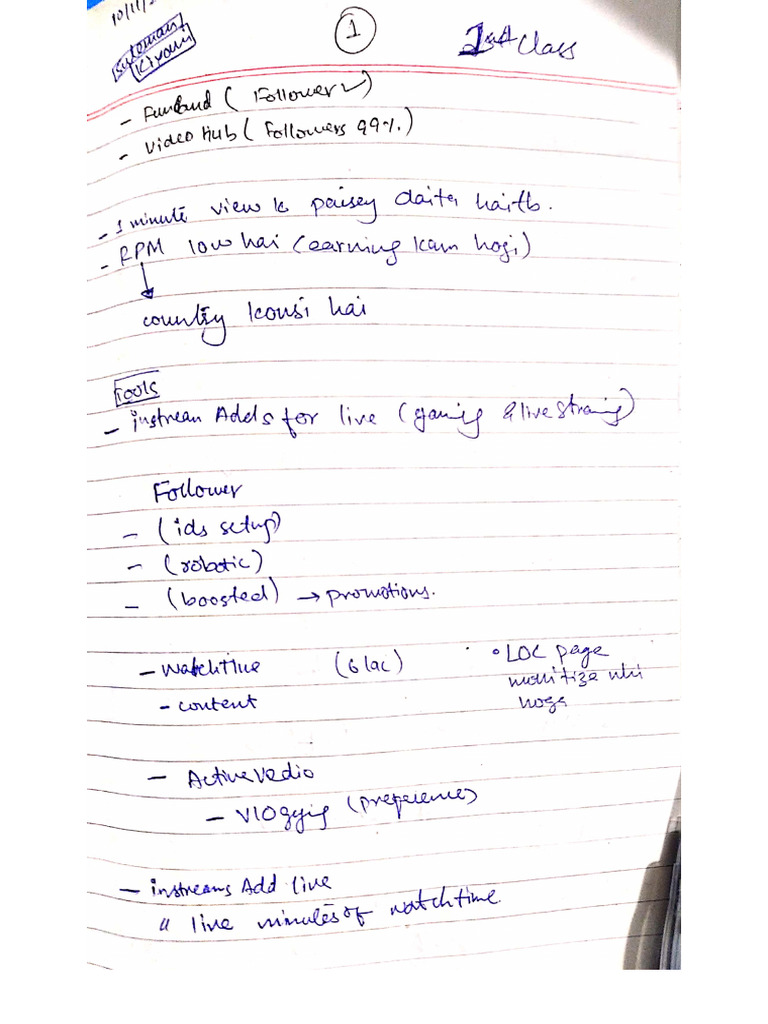 10/11/
1
1st Class
Suleman
Kirani
- Funfund (Follower ✓)
- Video Hub (Followers 99%.)
- 1 minute view k paisey daita hai fb.
- RPM low hai (earning kam hogi)
↓
country konsi hai
Tools
- instream Adds for live (gaming & live straming)
Follower
- (ids setup)
- (robotic)
- (boosted) → promotions.
- watchtime (6 lac)
- content
• LOC page
monitize nhi
hoga
- Active vedio
- Vlogging (preferences)
- instreams Add live
" live minutes of watchtime.